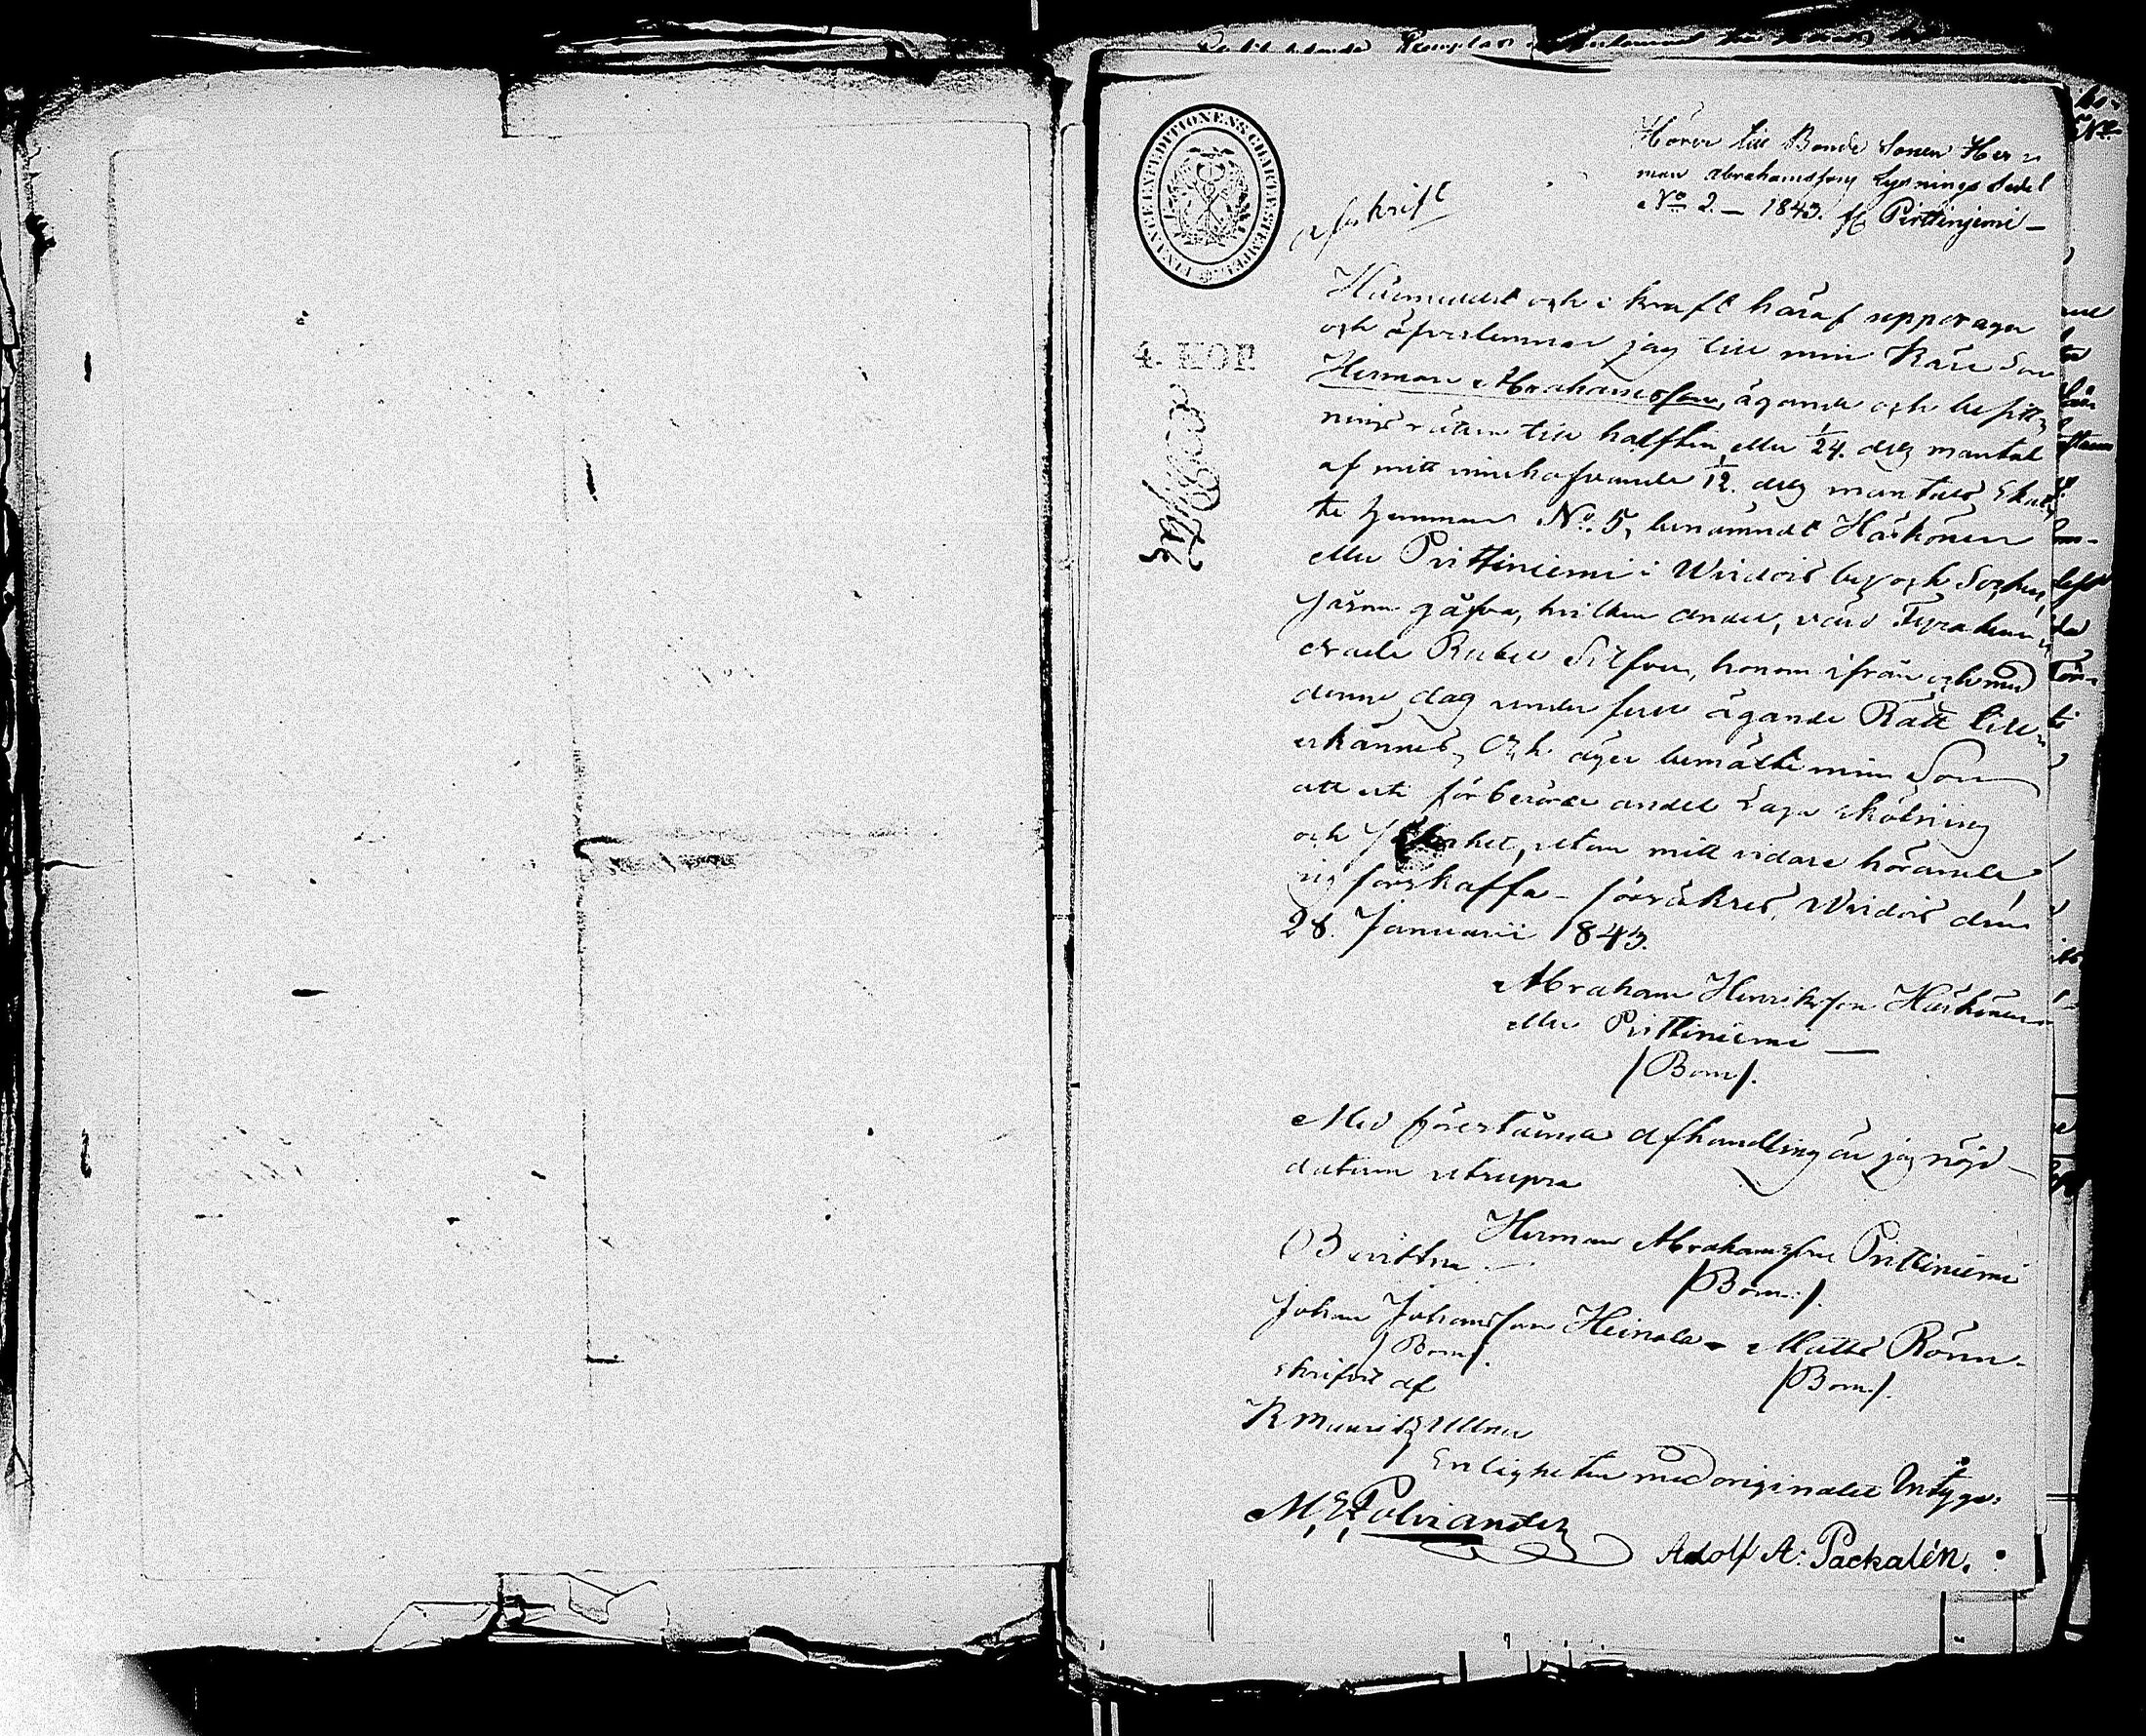 Hörer till Bonde Sonen Her=
man Abrahamssons Lysnings Sedel
No 2. — 1843. fr Pirttinjemi —
FINANCE EXPEDITIONENS CHARTÆ STEMPEL
Afskrift
4. KOP.
Härmedelst och i kraft häraf uppdrager
och öfverlemnar jag till min Käre Son
Herman Abrahamsson, ägande och besitt=
nings rätten till hälften eller 1/24. dels mantal
af mitt innehafvande 1/12. dels mantals Skat=
te hemman No 5, benämndt Härkönen
eller Pirttiniemi i Wirdois by och Sochn,
såsom gåfva, hvilken andel, värd Fyrahun=
drade Rubel Silfver, honom ifrån och med
denne dag under full ägande Rätt till=
erkännes, Och äger bemälte min Son
att uti förberörde andel Laga skötning
och utan mitt vidare hörande
sig förskaffa – försäkres, Wirdois den
28. Januarii 1843.
Abraham Henriksson Härkönen
eller Pirttiniemi —
/Bom/.
Med förestående afhandling är jag nöjd —
datum utsupra
Herman Abrahamsson Pirttiniemi
/Bom:/.
Bevittna:
Johan Johansson Heinola – Matts Rönn –
/Bom/.
/Bom/.
skrifvit af
Enligheten med originalet Intyga:
M. E. Polviander
Adolf A. Packalén.